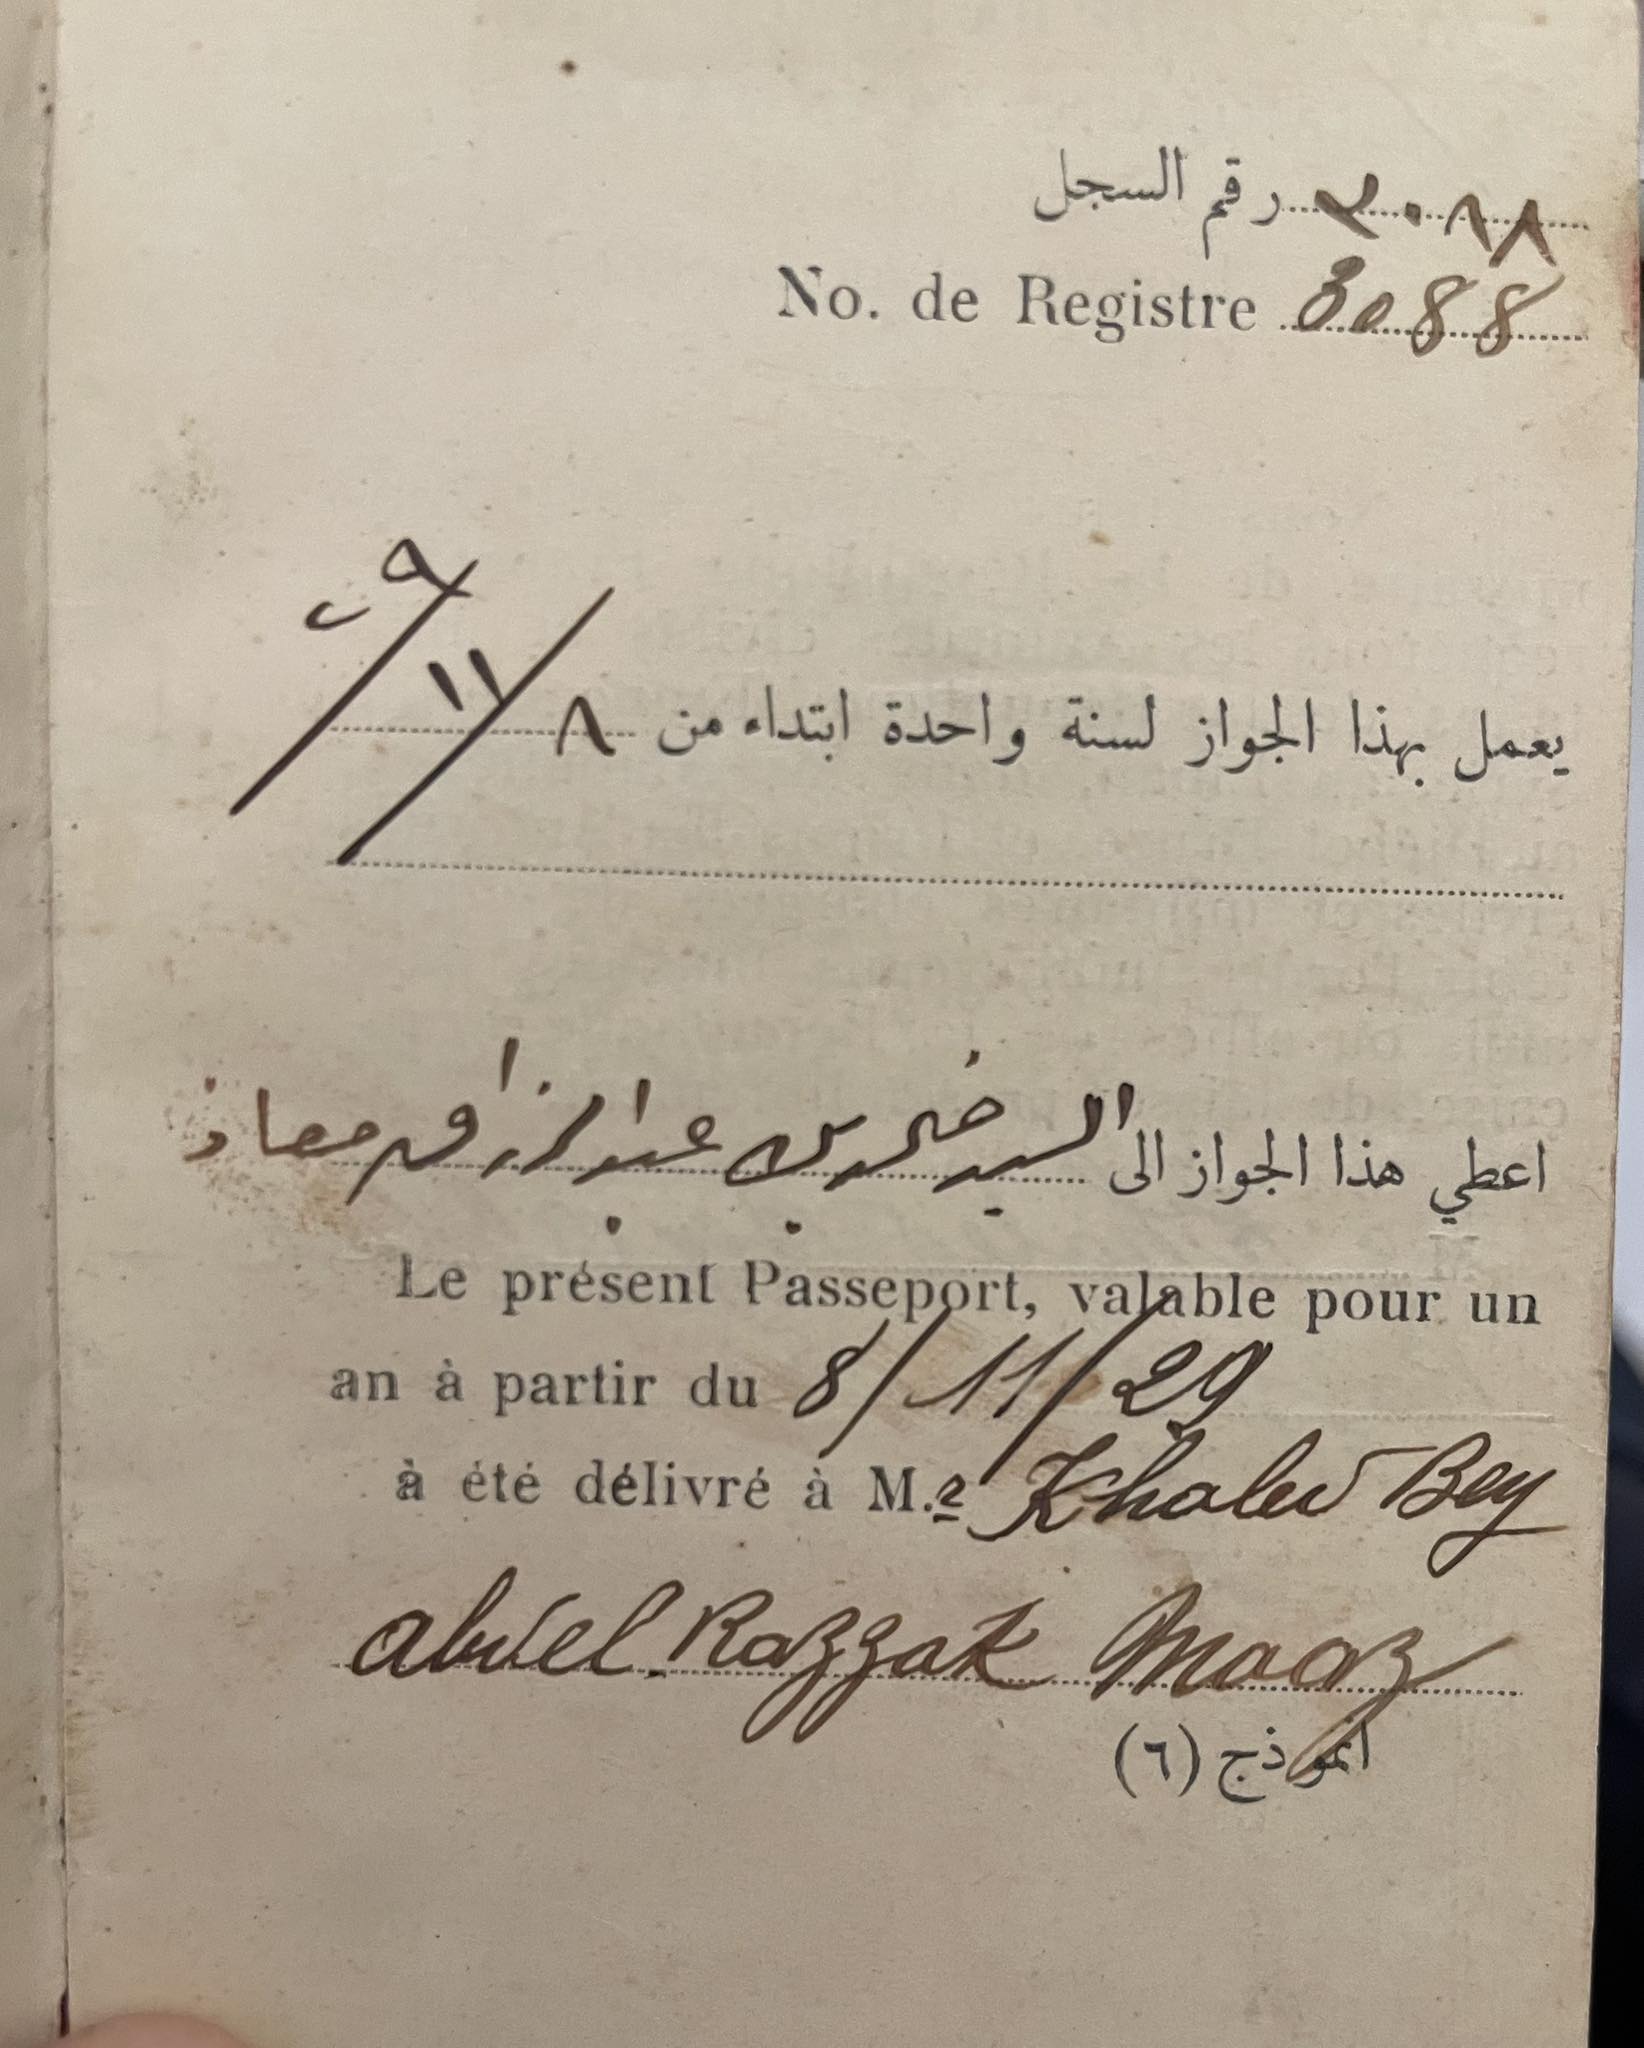 رقم السجل ٣٠٨٨
No. de Registre 3088
يعمل بهذا الجواز لسنة واحدة ابتداء من ٨/١١/٢٩
اعطي هذا الجواز الى السيد خالد بن عبد الرزاق معاذ
Le présent Passeport, valable pour un
an à partir du 8/11/29
à été délivré à M.r Khaled Bey
abdel-Razzak Maaz
انموذج (٦)